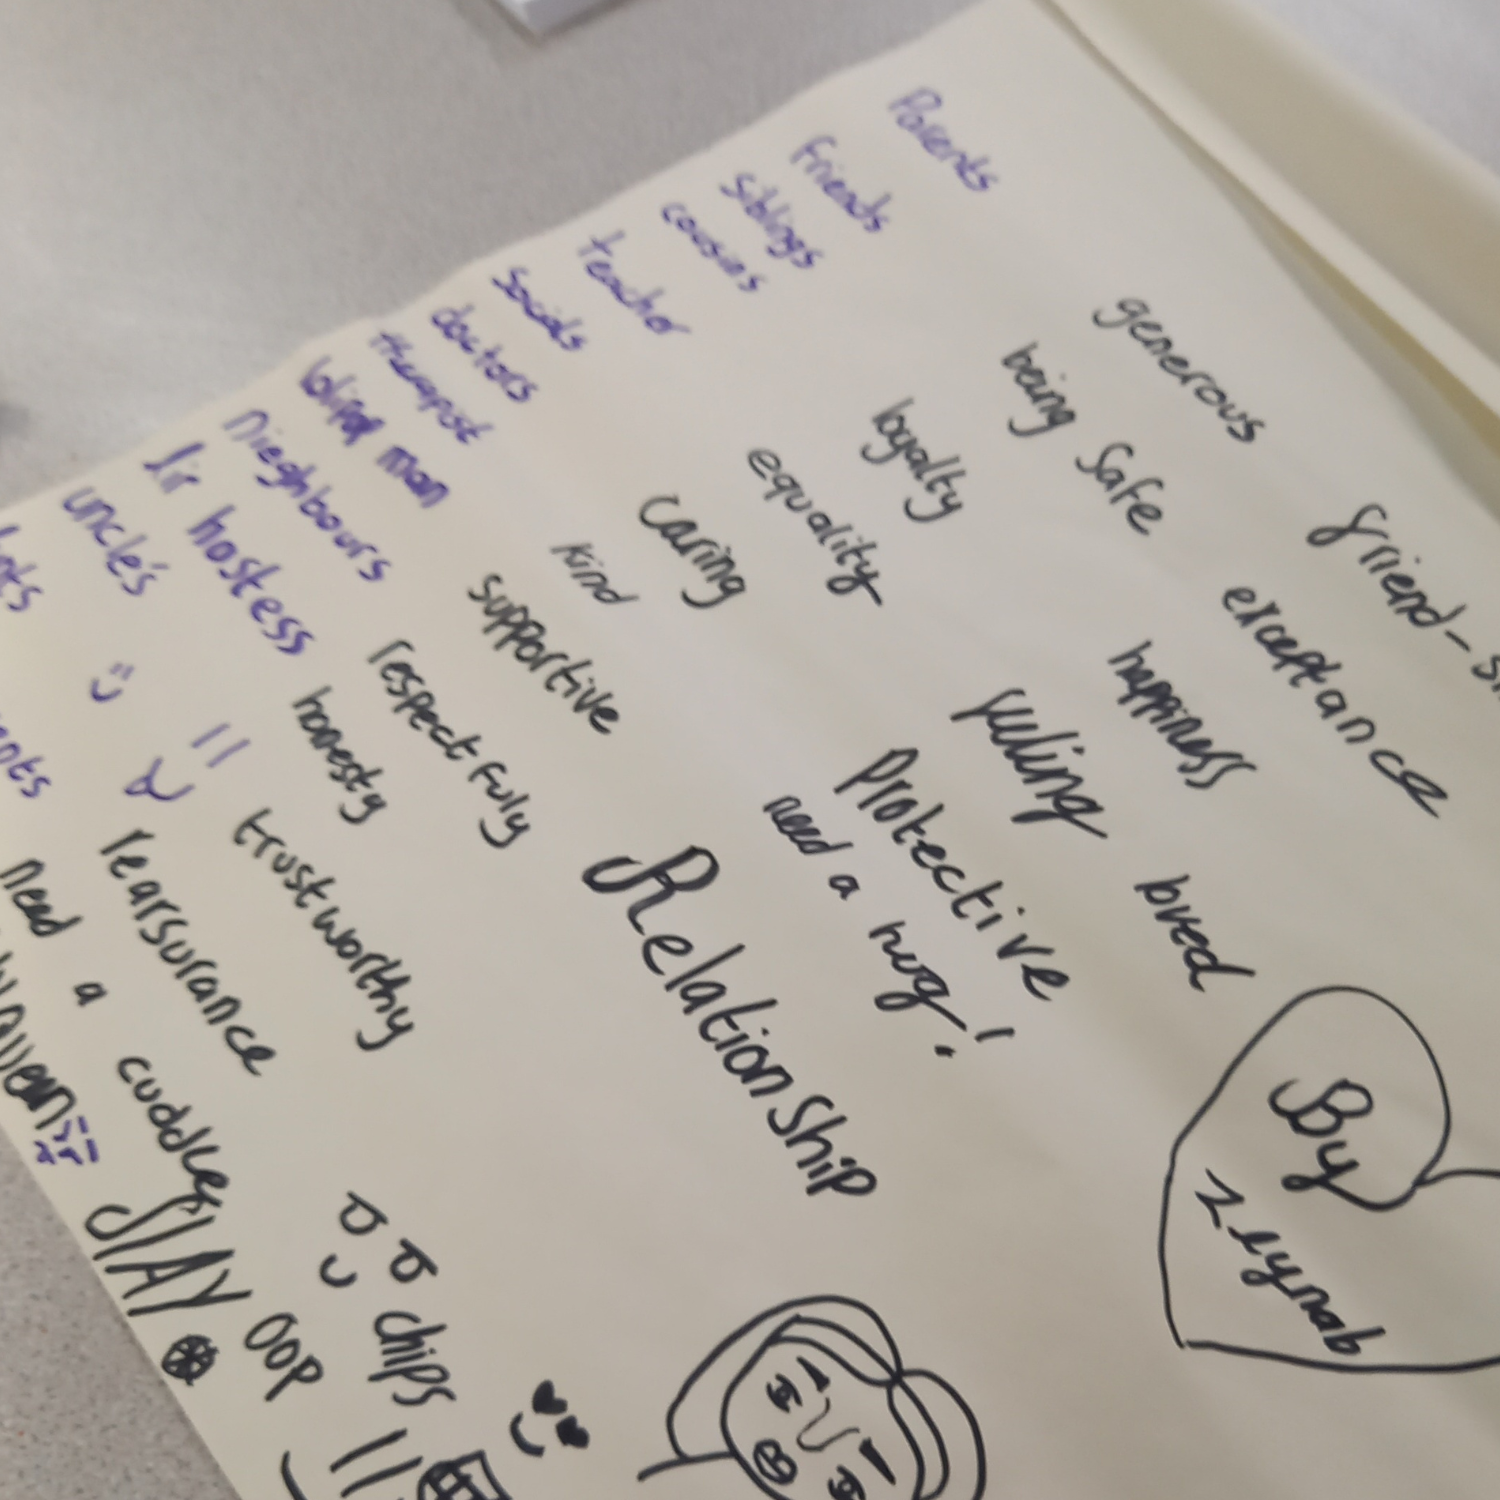 Parents
friends
siblings
cousins
teacher
Socials
doctors
therapist
man
nieghbours
air hostess
uncle's
generous
being Safe
loyalty
equality
caring
kind
supportive
respectfuly
honesty
trustworthy
rearsurance
need a cuddle
friend-
exceptance
happiness
loved
Protective
need a hug!
RelationShip
By
Zeynab
SLAY
OOP
chips